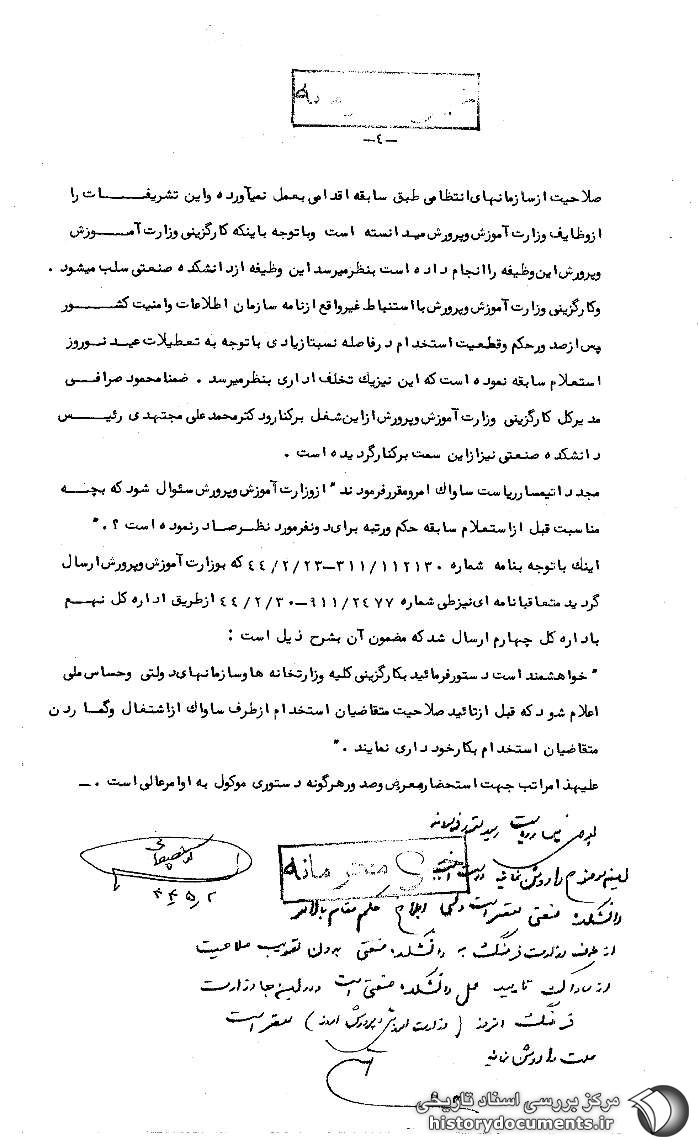 -٤-
صلاحیت از سازمانهای انتظامی طبق سابقه اقدامی بعمل نمیآورده واین تشریفات را
ازوظایف وزارت آموزش وپرورش میدانسته است وباتوجه باینکه کارگزینی وزارت آموزش
وپرورش این وظیفه را انجام داده است بنظرمیرسد این وظیفه ازدانشکده صنعتی سلب میشود .
وکارگزینی وزارت آموزش وپرورش با استنباط غیرواقع ازنامه سازمان اطلاعات وامنیت کشور
پس ازصدورحکم وقطعیت استخدام درفاصله نسبتا زیادی باتوجه به تعطیلات عید نوروز
استعلام سابقه نموده است که این نیزیک تخلف اداری بنظرمیرسد . ضمنا محمود صرافی
مدیرکل کارگزینی وزارت آموزش وپرورش ازاین شغل برکنارودکترمحمدعلی مجتهدی رئیس
دانشکده صنعتی نیزازاین سمت برکنارگردیده است .
مجددا تیمسارریاست ساواک امرومقررفرمودند " ازوزارت آموزش وپرورش سئوال شود که بچه
مناسبت قبل ازاستعلام سابقه حکم ورتبه برای دونفرمورد نظرصادرنموده است ؟ . "
اینک باتوجه بنامه شماره ۳۱۱/۱۱۲۱۳۰-٤٤/۲/۲۳ که بوزارت آموزش وپرورش ارسال
گردید متعاقبا نامه ای نیزطی شماره ۹۱۱/۲٤۷۷-٤٤/۲/۳۰ ازطریق اداره کل نهم
باداره کل چهارم ارسال شد که مضمون آن بشرح ذیل است :
" خواهشمند است دستورفرمائید بکارگزینی کلیه وزارتخانه هاوسازمانهای دولتی وحساس ملی
اعلام شود که قبل ازتائید صلاحیت متقاضیان استخدام ازطرف ساواک ازاشتغال وگماردن
متقاضیان استخدام بکارخود داری نمایند . "
علیهذا مراتب جهت استحضارمعروض وصدورهرگونه دستوری موکول به اوامرعالی است .-
محرمانه
دانشکده صنعتی مقصر است
از طرف وزارت فرهنگ به دانشکده صنعتی بدون تصویب صلاحیت
از ساواک تایید عمل دانشکده صنعتی است و در اینجا وزارت
فرهنگ امروز ( وزارت آموزش و پرورش امروز ) مقصر است
علت را روشن نمائید
مرکز بررسی اسناد تاریخی
historydocuments.ir